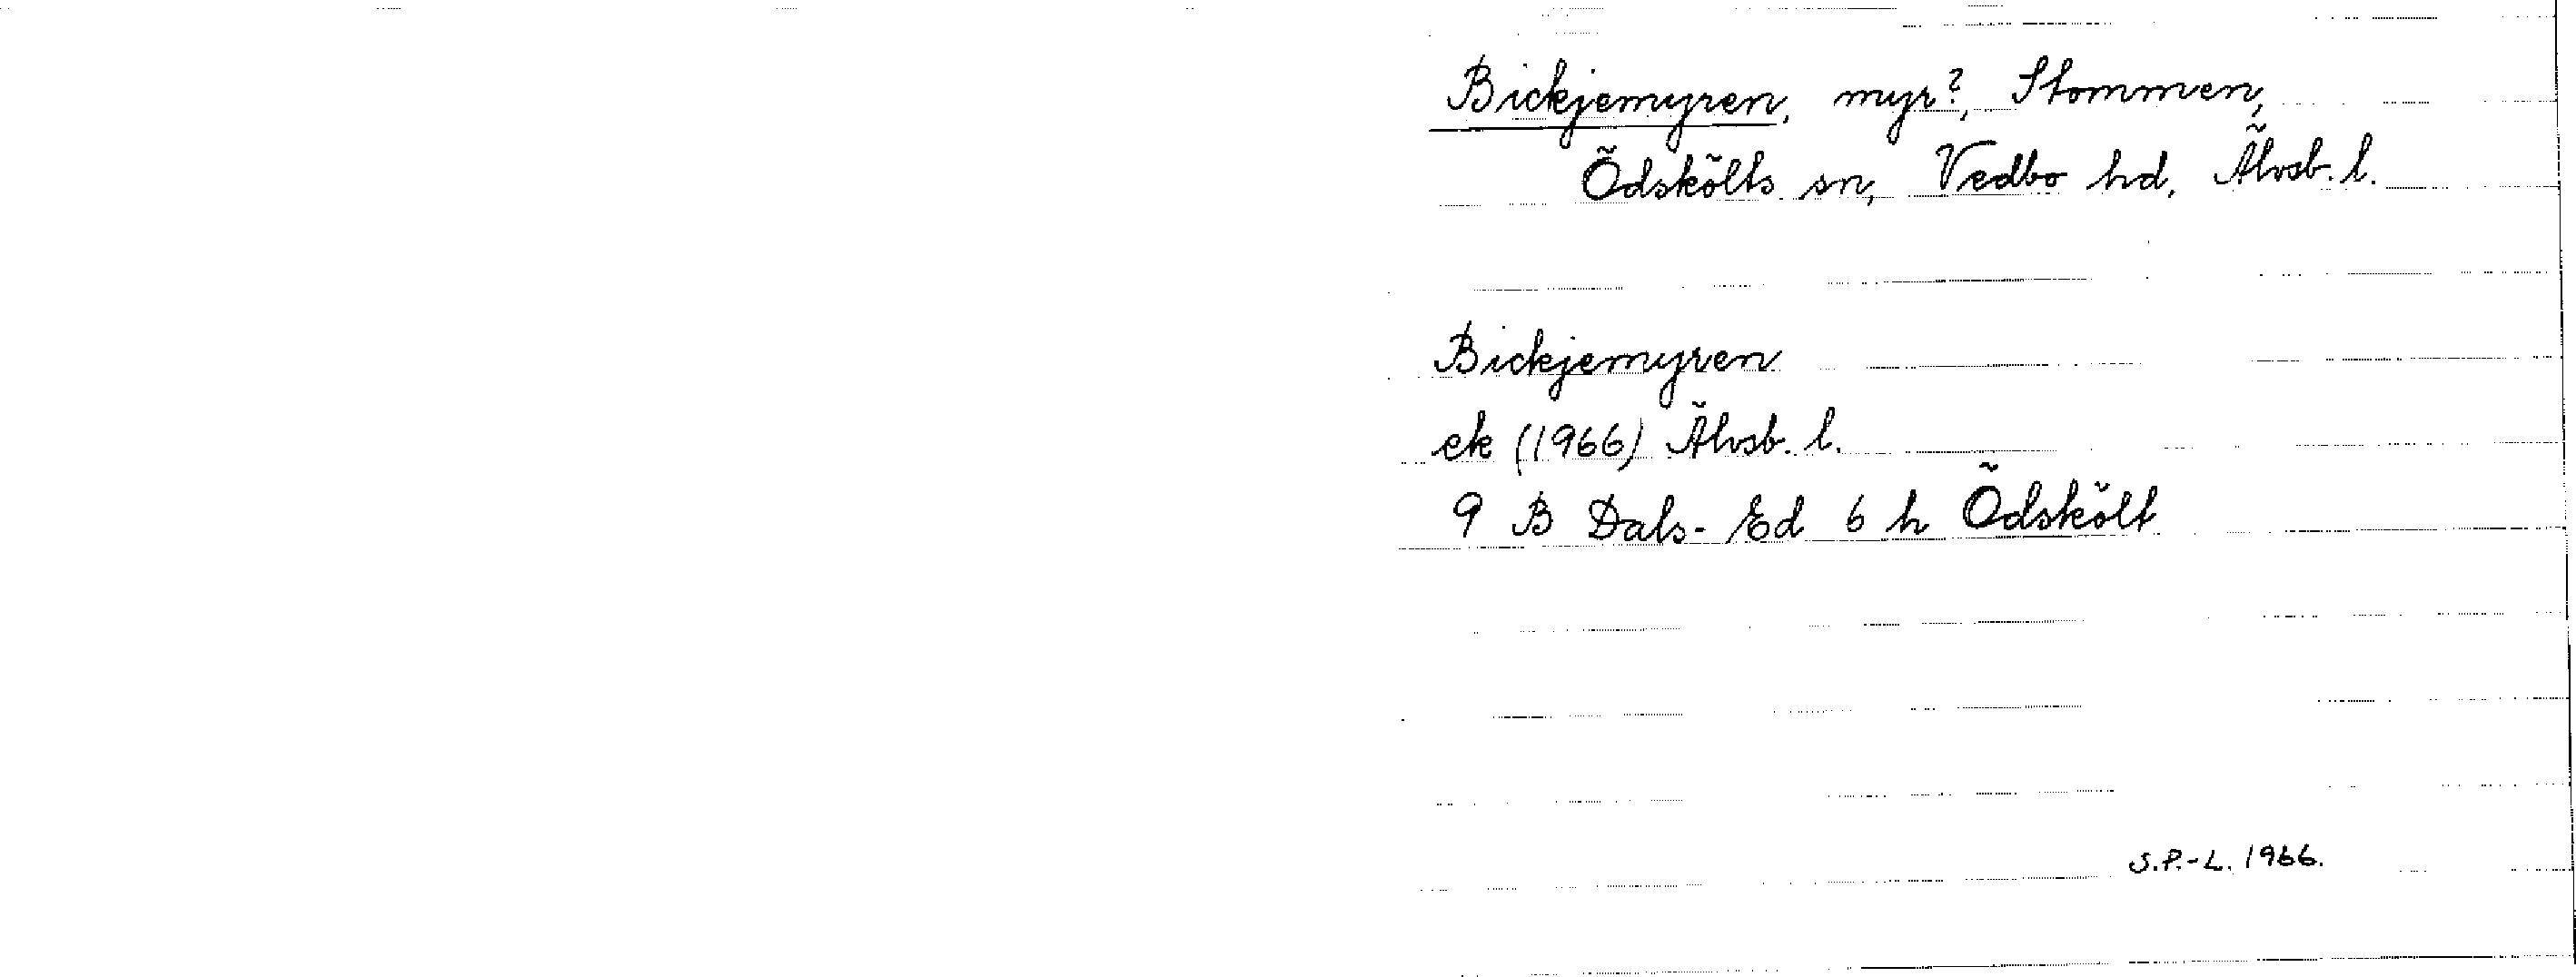 Bickjemyren, myr?, Stommen,
Ödskölts sn, Vedbo hd, Älvsb. l.
Bickjemyren
ek (1966) Älvsb. l.
9 B Dals-Ed 6 h Ödskölt
S.P.-L. 1966.